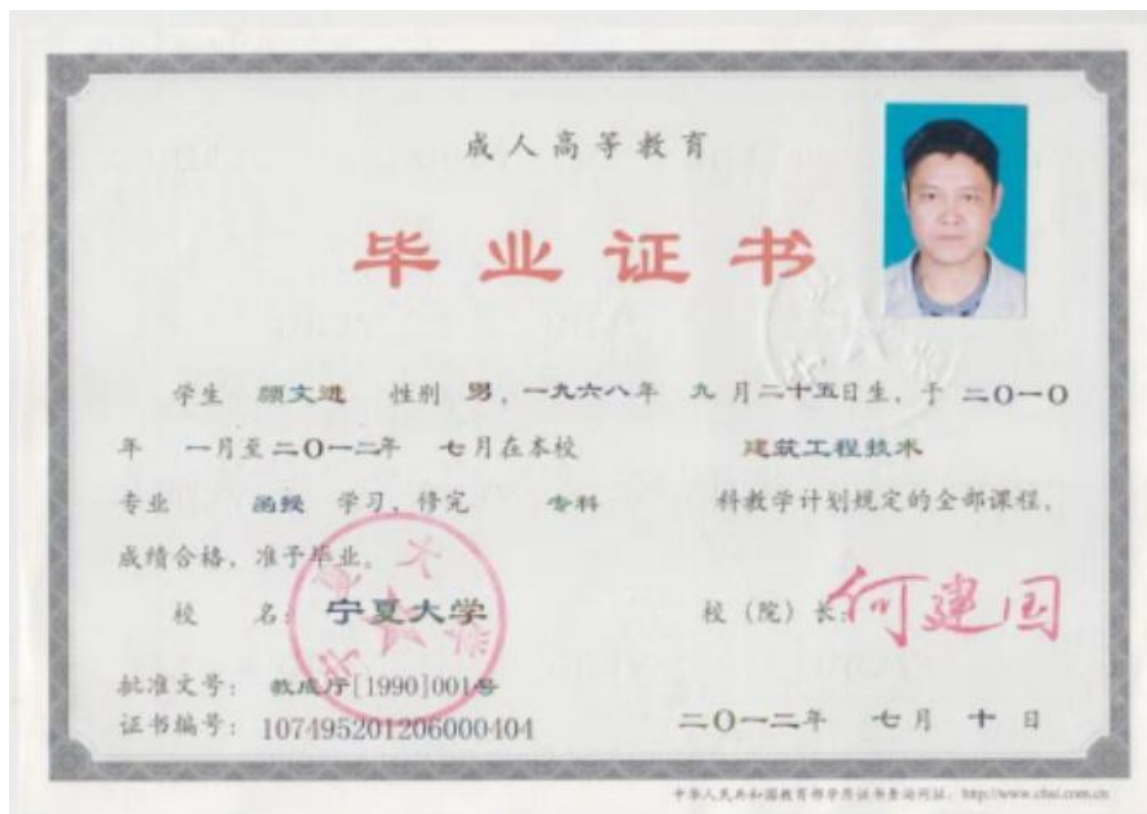 成人高等教育
毕业证书
学生 顾文进 性别 男，一九六八年 九月二十五日生，于 二〇一〇
年 一月至二〇一二年 七月在本校 建筑工程技术
专业 函授 学习，修完 专科 科教学计划规定的全部课程，
成绩合格，准予毕业。
校 名：宁夏大学
校（院）长：何建国
批准文号：教成厅[1990]001号
证书编号：107495201206000404
二〇一二年 七月 十日
中华人民共和国教育部学历证书查询网址：http://www.chsi.com.cn